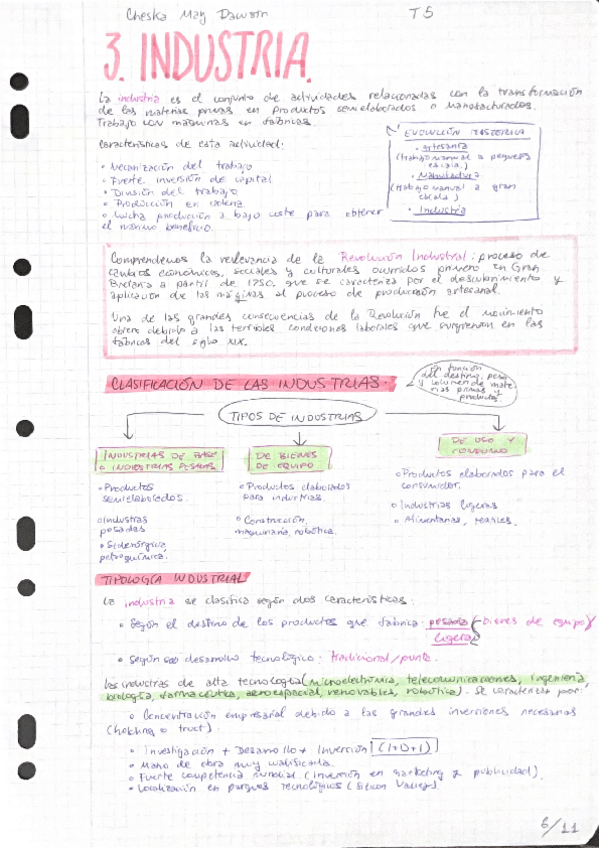 Cheska May Dawson
T5
3. INDUSTRIA.
La industria es el conjunto de actividades relacionadas con la transformación
de las materias primas en productos semielaborados o manufacturados.
Trabajo con máquinas en fábricas.
Características de esta actividad:
• Mecanización del trabajo
• Fuerte inversión de capital
• División del trabajo
• Producción en cadena
• Mucha producción a bajo coste para obtener
el máximo beneficio.
EVOLUCIÓN HISTÓRICA
• Artesanía
(trabajo manual a pequeña
escala)
• Manufactura
(trabajo manual a gran
escala)
• Industria
Comprendemos la relevancia de la Revolución Industrial: proceso de
cambios económicos, sociales y culturales ocurridos primero en Gran
Bretaña a partir de 1750, que se caracteriza por el descubrimiento y
aplicación de las máquinas al proceso de producción artesanal.
Una de las grandes consecuencias de la Revolución fue el movimiento
obrero debido a las terribles condiciones laborales que surgieron en las
fábricas del siglo XIX.
CLASIFICACIÓN DE LAS INDUSTRIAS
En función
del destino, peso
y volumen de mate
rias primas y
productos.
TIPOS DE INDUSTRIAS
INDUSTRIAS DE BASE
O INDUSTRIAS PESADAS
• Productos
semielaborados.
• Industrias
pesadas
• Siderúrgica,
petroquímica.
DE BIENES
DE EQUIPO
• Productos elaborados
para industrias.
• Construcción,
maquinaria, robótica.
DE USO Y
CONSUMO
• Productos elaborados para el
consumidor.
• Industrias ligeras
• Alimentarias, textiles.
TIPOLOGÍA INDUSTRIAL
La industria se clasifica según dos características:
• Según el destino de los productos que fabrica: pesada (bienes de equipo) y
ligera
• Según su desarrollo tecnológico: tradicional/punta.
Las industrias de alta tecnología (microelectrónica, telecomunicaciones, ingeniería
biología, farmacéutica, aeroespacial, renovables, robótica). Se caracterizan por:
• Concentración empresarial debido a las grandes inversiones necesarias
(holding o truct).
• Investigación + Desarrollo + Inversión (I+D+I)
• Mano de obra muy cualificada.
• Fuerte competencia mundial (inversión en marketing y publicidad).
• Localización en parques tecnológicos (Silicon Valley)
6/11